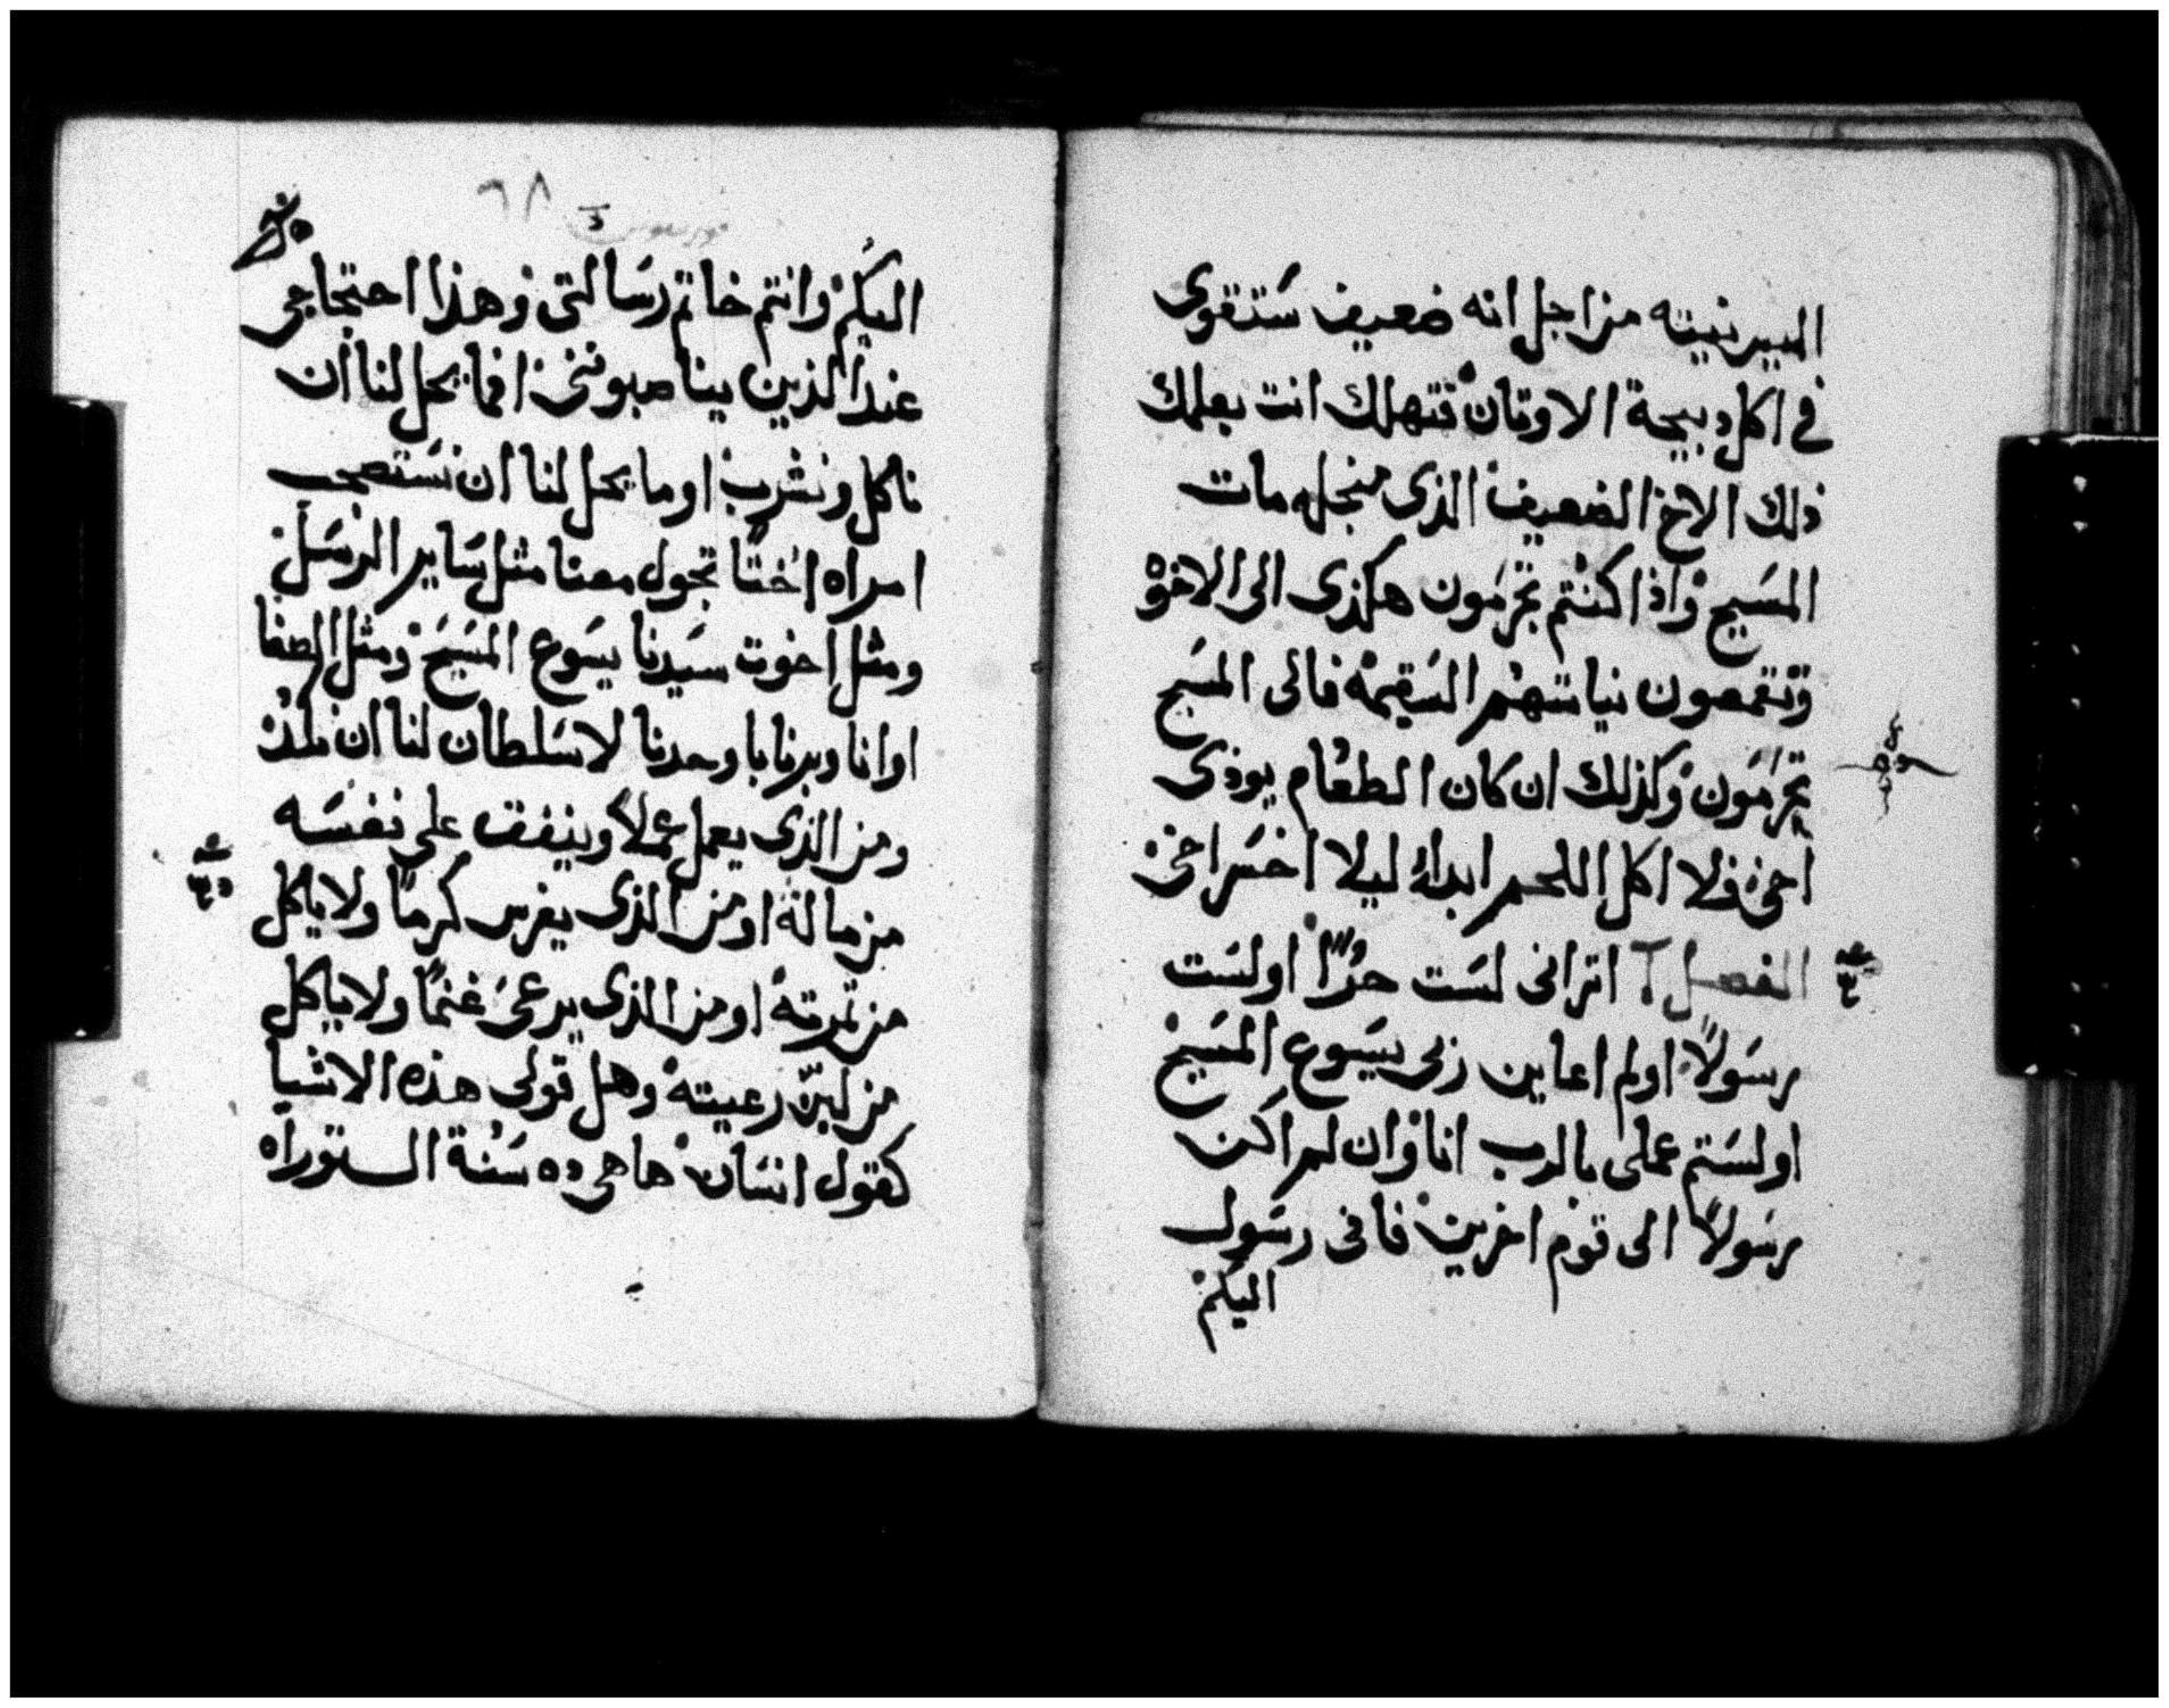 اليبر نيته من اجل انه ضعيف ستقوى
في اكل دبيحة الاوتان فتهلك انت بعلمك
ذلك الاخ الضعيف الذى منجله مات
المسيح واذا كنتم تجرمون هكذى الى الاخوه
وتقمعون نياتهم السقيمه فالى المسيح
تجرمون وكذلك ان كان الطعام يوذى
اخى فلا اكل اللحم ابداً ليلا اخسر اخى
الفصل اترانى لست حرًا اولست
رسولاً اولم اعاين ربى يسوع المسيح
اولستم عملى بالرب انا وان لم اكن
رسولاً الى قوم اخرين فانى رسول
اليكم
٦٨
اليكم وانتم خاتم رسالتى وهذا احتجاجى
عند الذين يناصبونى افما يحل لنا ان
ناكل ونشرب او ما يحل لنا ان نستصحب
امراه اختًا تجول معنا مثل ساير الرسل
ومثل اخوت سيدنا يسوع المسيح ومثل الصفا
او انا وبرنابا وحدنا لا سلطان لنا ان
ومن الذى يعمل عملاً وينفق على نفسه
من ماله او من الذى يغرس كرمًا ولا ياكل
من تمرته او من الذى يرعى غنمًا ولا ياكل
من لبن رعيته وهل قولى هذه الاشيا
كقول انسان ها هى ده سنة التوراه